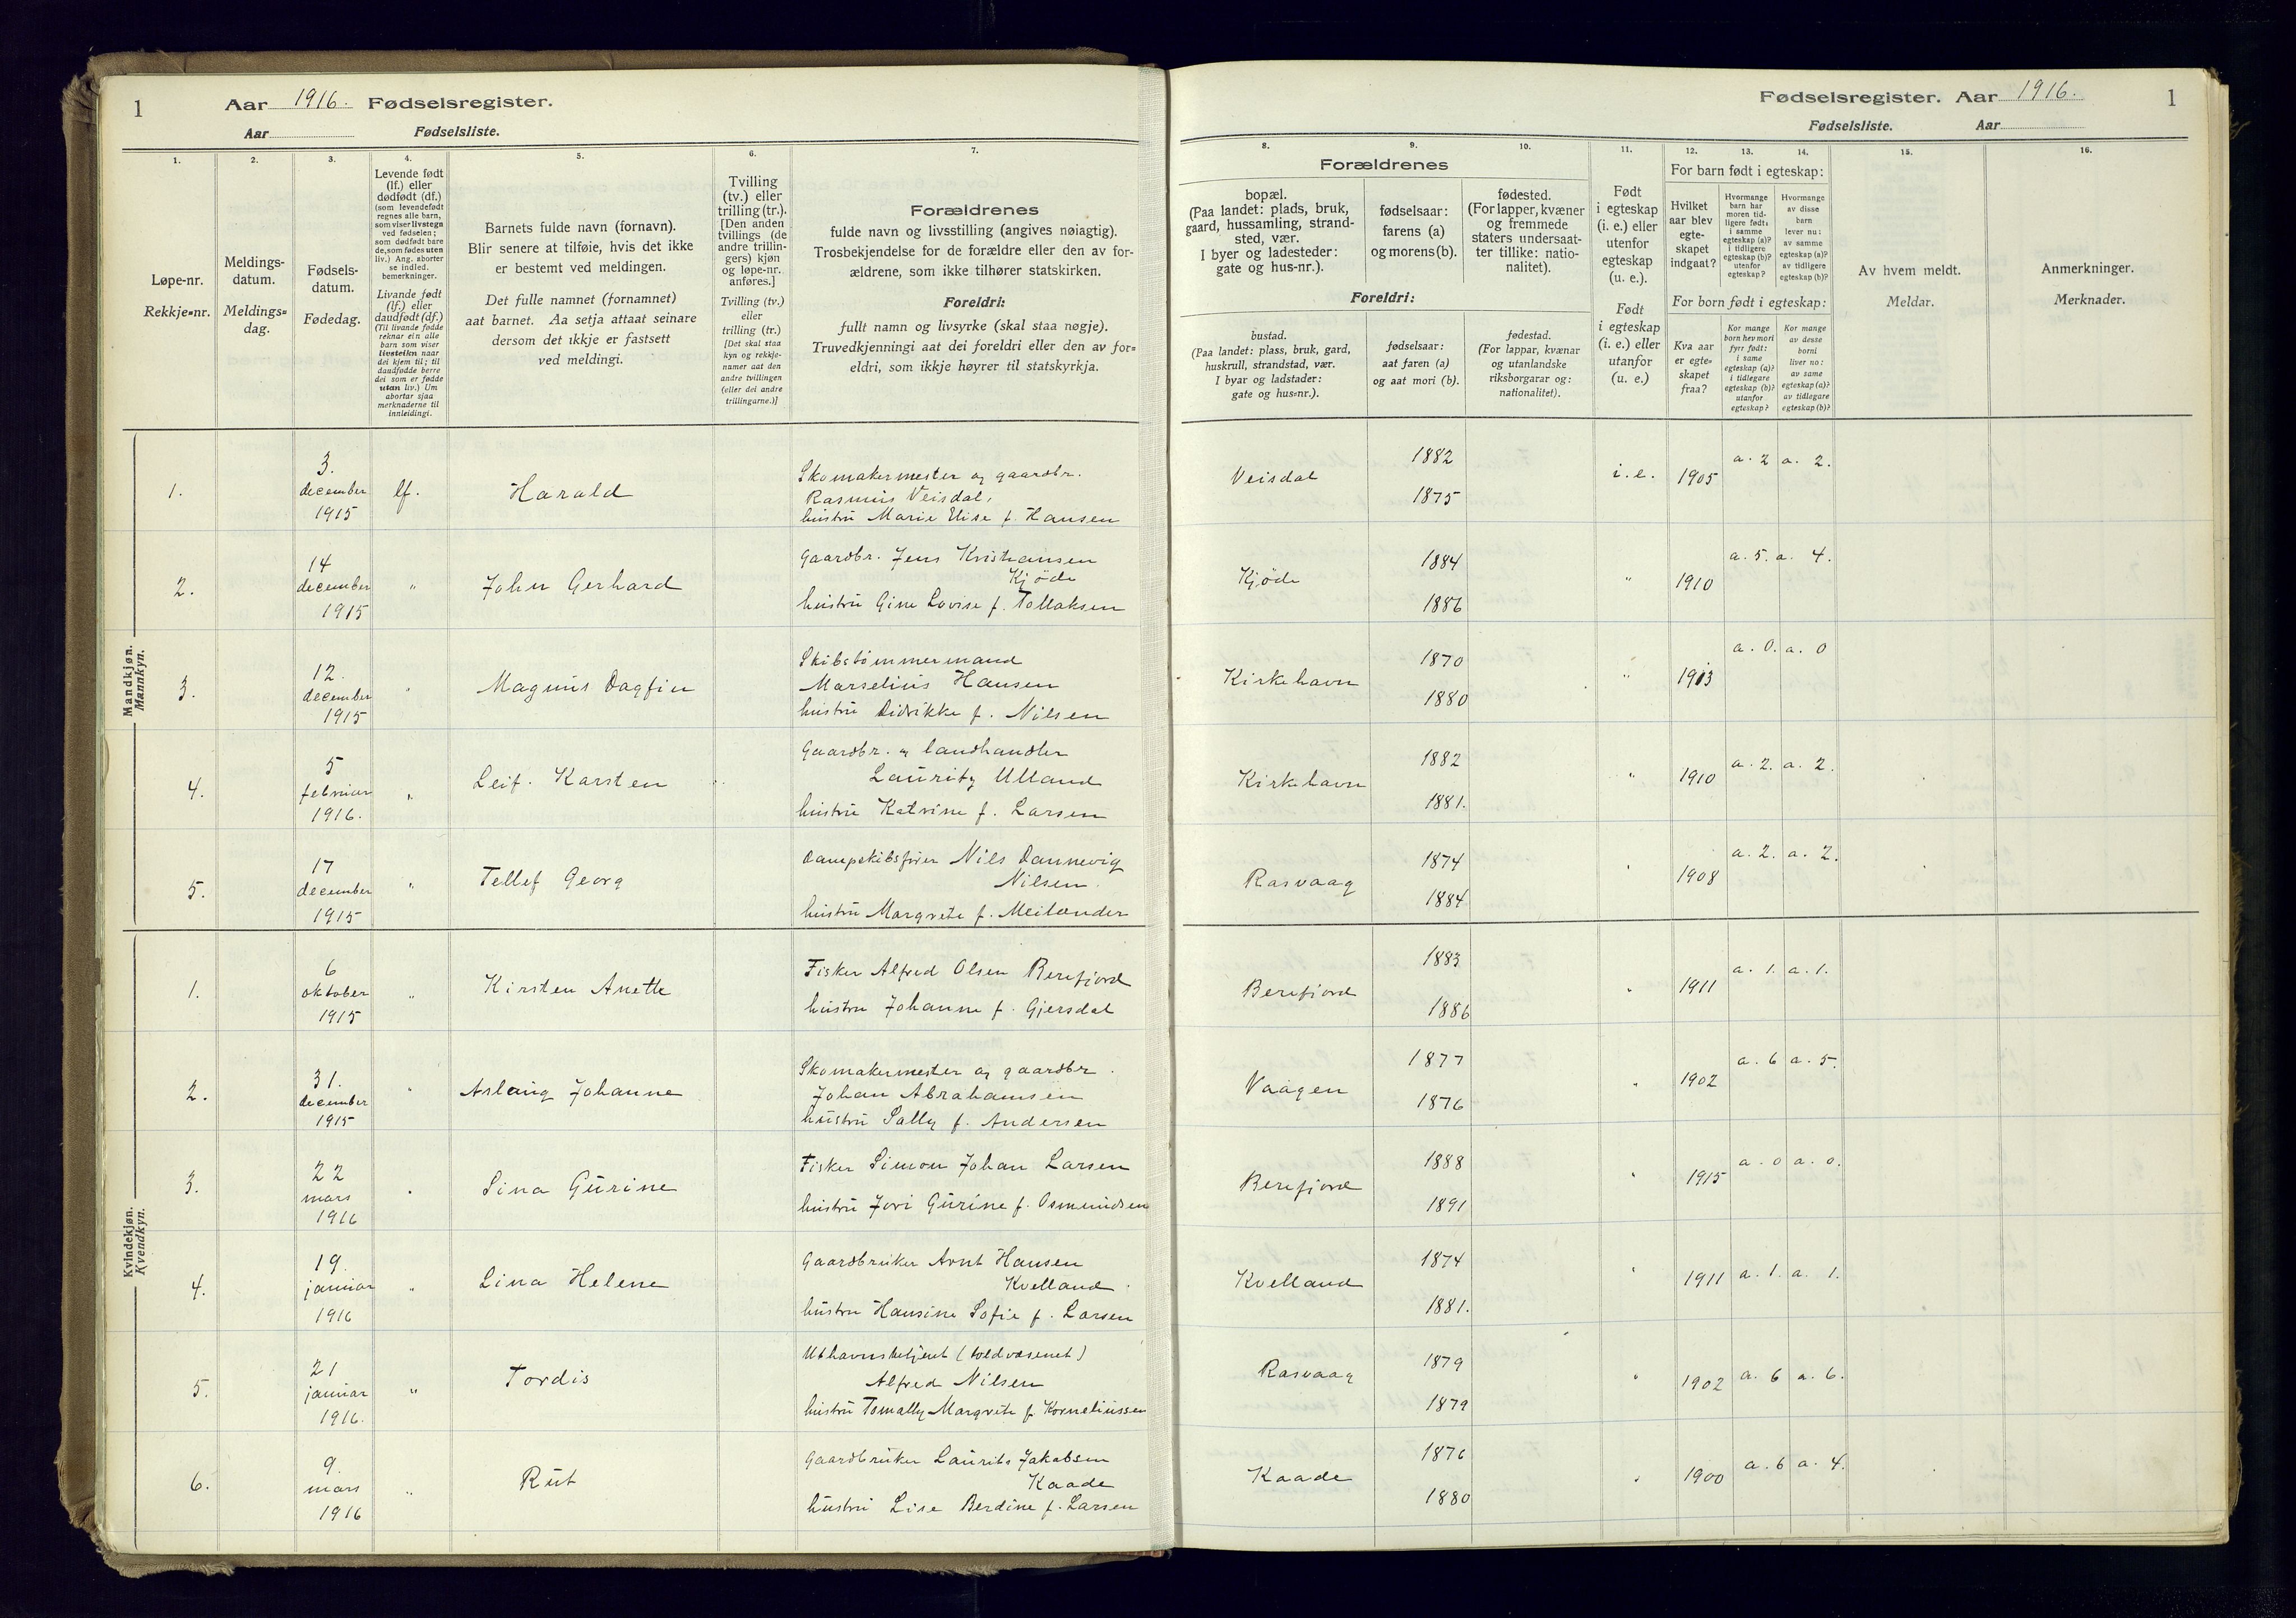 1
Aar 1916. Fødselsregister.
Aar Fødselsliste.
1.
2.
3.
4.
5.
6.
7.
Løpe-nr.
Rekkje=nr.
Meldings-
datum.
Meldings=
dag.
Fødsels-
datum.
Fødedag.
Levende født
(lf.) eller
dødfødt (df.)
(som levendefødt
regnes alle barn,
som viser livstegn
ved fødselen;
som dødfødt bare
de, som fødes uten
liv.) Ang. aborter
se indled.
bemerkninger.
Livande født
(lf.) eller
daudfødt (df.)
(Til livande fødde
reknar ein alle
barn som viser
livsteikn naar
dei kjem til; til
daudfødde berre
dei som er fødde
utan liv.) Um
abortar sjaa
merknaderne til
innleidingi.
Barnets fulde navn (fornavn).
Blir senere at tilføie, hvis det ikke
er bestemt ved meldingen.
Det fulle namnet (fornamnet)
aat barnet. Aa setja attaat seinare
dersom det ikkje er fastsett
ved meldingi.
Tvilling
(tv.) eller
trilling (tr.).
[Den anden
tvillings (de
andre trillin-
gers) kjøn
og løpe-nr.
anføres.]
Tvilling (tv.)
eller
trilling (tr.)
[Det skal staa
kyn og rekkje-
numer aat den
andre tvillingen
(eller dei andre
trillingarne.)]
Forældrenes
fulde navn og livsstilling (angives nøiagtig).
Trosbekjendelse for de forældre eller den av for-
ældrene, som ikke tilhører statskirken.
Foreldri:
fullt namn og livsyrke (skal staa nøgje).
Truvedkjenningi aat dei foreldri eller den av for=
eldri, som ikkje høyrer til statskyrkja.
Mandkjøn.
Mannkyn.
1.
3.
december
1915
lf.
Harald
Skomakermester og gaardbr.
Rasmus Veisdal,
hustru Marie Elise f. Hansen
2.
14
december
1915
"
John Gerhard
Gaardbr. Jens Kristiansen
Kjöde
hustru Gine Lovise f. Tollaksen
3.
12.
december
1915
"
Magnus Dagfin
Skibstömmermand
Marselius Hansen
hustru Didrikke f. Nilsen
4.
5
februar
1916.
"
Leif. Karsten
Gaardbr. og landhandler
Lauritz Ulland
hustru Katrine f. Larsen
5.
17
december
1915
"
Tellef Georg
Dampskibsfører Nils Dannevig
Nilsen.
hustru Margrete f. Meilænder
Kvindekjøn.
Kvendkyn.
1.
6
oktober
1915
"
Kirsten Anette
Fisker Alfred Olsen Berefjord
hustru Johanne f. Gjersdal
2.
31.
december
1915
"
Aslaug Johanne
Skomakermester og gaardbr.
Johan Abrahamsen
hustru Sally f. Andersen
3.
22
mars
1916
"
Sina Gurine
Fisker Simon Johan Larsen
hustru Jori Gurine f. Osmundsen
4.
19.
januar
1916
"
Lina Helene
Gaardbruker Arnt Hansen
Kvelland
hustru Hansine Sofie f. Larsen
5.
21
januar
1916.
"
Tordis
Uthavnsbetjent (toldvæsenet)
Alfred Nilsen
hustru Margrete f. Korneliussen
6.
9.
mars
1916
"
Rut
Gaardbruker Laurits Jakobsen
Kaade
hustru Lise Berdine f. Larsen
Fødselsregister. Aar 1916.
1
Fødselsliste. Aar
8.
9.
10.
11.
12.
13.
14.
15.
16.
Forældrenes
bopæl.
(Paa landet: plads, bruk,
gaard, hussamling, strand-
sted, vær.
I byer og ladesteder:
gate og hus-nr.).
fødselsaar:
farens (a)
og morens (b).
fødested.
(For lapper, kvæner
og fremmede
staters undersaat-
ter tillike: natio-
nalitet).
Foreldri:
bustad.
(Paa landet: plass, bruk, gard,
huskrull, strandstad, vær.
I byar og ladstader:
gate og hus=nr.).
fødselsaar:
aat faren (a)
og aat mori (b).
fødestad.
(For lappar, kvænar
og utanlandske
riksborgarar og:
nationalitet).
Født
i egteskap
(i. e.) eller
utenfor
egteskap
(u. e.).
Født
i egteskap
(i. e.) eller
utanfor
(u. e.)
For barn født i egteskap:
Hvilket
aar blev
egte-
skapet
indgaat?
Hvormange
barn har
moren tid-
ligere født,
i samme
egteskap (a)?
i tidligere
egteskap (b)?
utenfor
egteskap?
Hvormange
av disse
barn
lever nu:
av samme
egteskap (a)?
av tidligere
egteskap (b)?
For born født i egteskap:
Kva aar
er egte=
skapet
fraa?
Kor mange
born hev mori
fyrr født:
i same
egteskap (a)?
i tidlegare
egteskap (b)?
utanfor
egteskap?
Kor mange
av desse
borni
liver no:
av same
egteskap (a)?
av tidlegare
egteskap (b)?
Av hvem meldt.
Meldar.
Anmerkninger.
Merknader.
Veisdal
1882
1875
i. e.
1905
a. 2
a. 2.
Kjöde
1884
1886
"
1910
a. 5.
a. 4.
Kirkehavn
1870
1880
"
1913
a. 0.
a. 0
Kirkehavn
1882
1881.
"
1910
a. 2.
a. 2.
Rasvaag
1874
1884
"
1908
a. 2.
a. 2.
Berefjord
1883
1886
"
1911
a. 1.
a. 1.
Vaagen
1877
1876
"
1902
a. 6
a. 5.
Berefjord
1888
1891
"
1915
a. 0
a. 0.
Kvelland
1874
1881.
"
1911
a. 1.
a. 1.
Rasvaag
1879
1879
"
1902
a. 6
a. 6.
Kaade
1876
1880
"
1900
a. 6
a. 4.